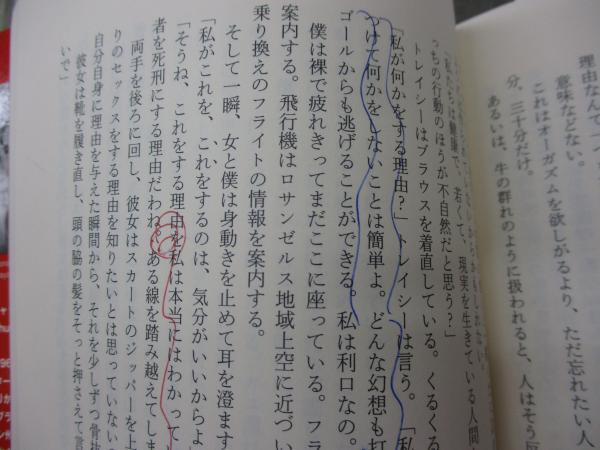 理由なんて
意味などない。
これはオーガズムを欲しがるより、ただ忘れたい人
分、三十分だけ。
あるいは、牛の群れのように扱われると、人はそう反
は健康で、若くて、現実を生きている人間
っちの行動のほうが不自然だと思う？」
トレイシーはブラウスを着直している。くるくる
「私が何かをする理由？」トレイシーは言う。「私
つけて何かをしないことは簡単よ。どんな幻想も打
ゴールからも逃げることができる。私は利口なの。
僕は裸で疲れきってまだここに座っている。フラ
案内する。飛行機はロサンゼルス地域上空に近づい
乗り換えのフライトの情報を案内する。
そして一瞬、女と僕は身動きを止めて耳を澄ます
「私がこれを、これをするのは、気分がいいからよ
「そうね、これをする理由を私は本当にはわかって
者を死刑にする理由だわね。ある線を踏み越えてしま
両手を後ろに回し、彼女はスカートのジッパーを上
りのセックスをする理由を知りたいとは思っていない
自分自身に理由を与えた瞬間から、それを少しずつ骨抜
彼女は靴を履き直し、頭の脇の髪をそっと押さえて言
いで」